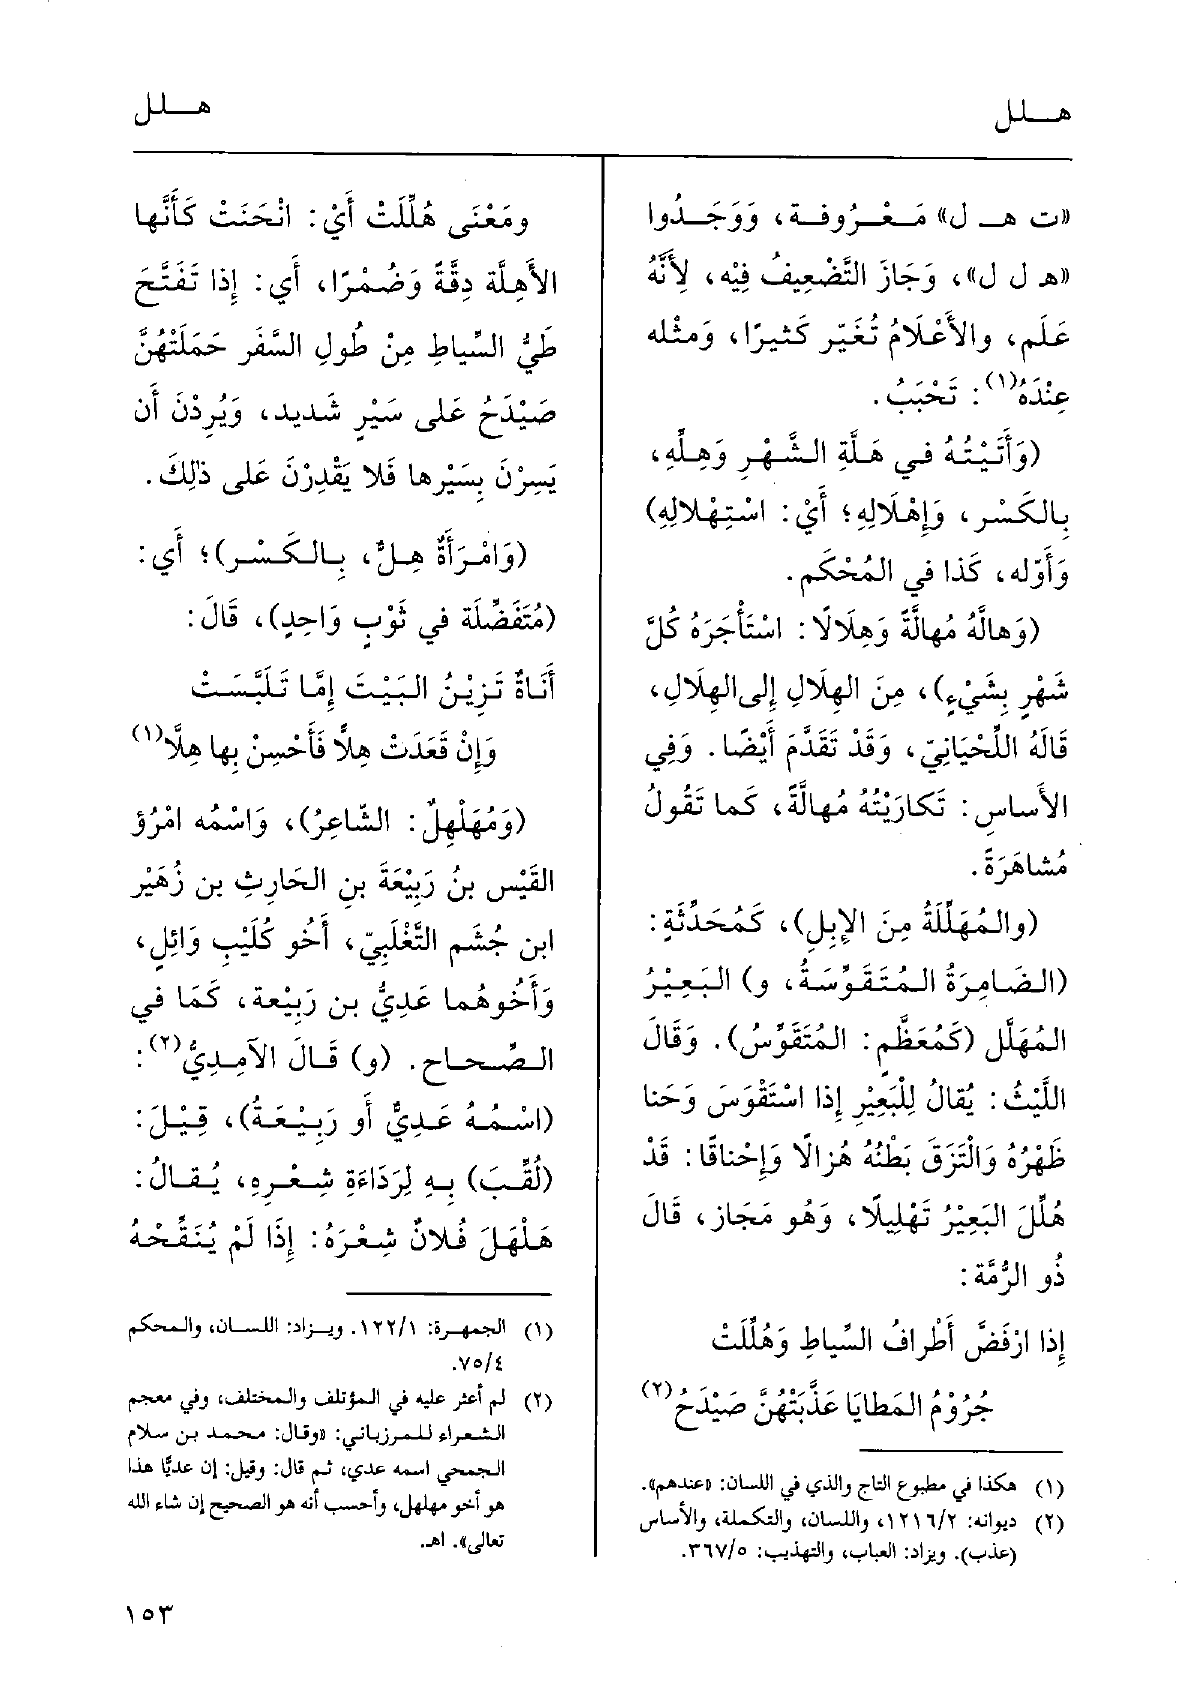 هـلل
هـلل
«ت هـ ل» مَعْرُوفة، وَوَجَدُوا
«هـ ل ل»، وَجَازَ التَّضْعِيفُ فِيْه، لِأَنَّهُ
عَلَم، والأَعْلَامُ تُغَيّر كَثيرًا، وَمثْله
عِنْدَهُ(١): تَحْبَبُ.
(وَأَتَيْتُهُ في هَلَّةِ الشَّهْرِ وَهِلِّهِ،
بِالكَسْر، وَإِهْلَالِهِ؛ أَيْ: اسْتِهْلالِهِ)
وَأَوّله، كَذا في المُحْكَم.
(وَهالَّهُ مُهالَّةً وَهِلَالًا: اسْتَأْجَرَهُ كُلَّ
شَهْرٍ بِشَيْءٍ)، مِنَ الهِلَالِ إِلى الهِلَالِ،
قَالَهُ اللِّحْيَانِيّ، وَقَدْ تَقَدَّمَ أَيْضًا. وَفِي
الأَساسِ: تَكارَيْتُهُ مُهالَّةً، كَما تَقُولُ
مُشاهَرَةً.
(والمُهَلِّلَةُ مِنَ الإِبِلِ)، كَمُحَدِّثَةٍ:
(الضَامِرَةُ المُتَقَوِّسَةُ، و) البَعِيْرُ
المُهَلَّل (كَمُعَظَّمٍ: المُتَقَوِّسُ). وَقَالَ
اللَّيْثُ: يُقالُ لِلْبَعِيْرِ إِذا اسْتَقْوَسَ وَحَنا
ظَهْرُهُ وَالْتَزَقَ بَطْنُهُ هُزالًا وَإِحْناقًا: قَدْ
هُلِّلَ البَعِيْرُ تَهْلِيلًا، وَهُو مَجَاز، قَالَ
ذُو الرُّمَّة:
إِذا ارْفَضَّ أَطْرافُ السِّياطِ وَهُلِّلَتْ
جُرُوْمُ المَطايَا عَذَّبَتْهُنَّ صَيْدَحُ(٢)
(١) هكذا في مطبوع التاج والذي في اللسان: «عندهم».
(٢) ديوانه: ١٢١٦/٢، واللسان، والتكملة، والأساس
(عذب). ويزاد: العباب، والتهذيب: ٣٦٧/٥.
ومَعْنَى هُلِّلَتْ أَيْ: انْحَنَتْ كَأَنَّها
الأَهِلَّة دِقَّةً وَضُمْرًا، أَي: إِذا تَفَتَّحَ
طَيُّ السِّياطِ مِنْ طُولِ السَّفَر حَمَلَتْهُنَّ
صَيْدَحُ عَلى سَيْرٍ شَديد، وَيُرِدْنَ أَن
يَسِرْنَ بِسَيْرها فَلا يَقْدِرْنَ عَلى ذلِكَ.
(وَامْرَأَةٌ هِلٌّ، بِالكَسْر)؛ أَي:
(مُتَفَضِّلَة في ثَوْبٍ وَاحِدٍ)، قَالَ:
أَناةٌ تَزِيْنُ البَيْتَ إِمَّا تَلَبَّسَتْ
وَإِنْ قَعَدَتْ هِلًّا فَأَحْسِنْ بِها هِلَّا(١)
(وَمُهَلْهِلٌ: الشّاعِرُ)، وَاسْمُه امْرُؤ
القَيْس بنُ رَبِيْعَةَ بنِ الحَارِثِ بن زُهَيْر
ابن جُشَم التَّغْلِبِيّ، أَخُو كُلَيْبِ وَائِلٍ،
وَأَخُوهُما عَدِيُّ بن رَبِيْعة، كَمَا في
الصِّحاح. (و) قَالَ الآمِدِيُّ(٢):
(اسْمُهُ عَدِيٌّ أَو رَبِيْعَةُ)، قِيْلَ:
(لُقِّبَ) بِهِ لِرَدَاءَةِ شِعْرِهِ، يُقالُ:
هَلْهَلَ فُلانٌ شِعْرَهُ: إِذَا لَمْ يُنَقِّحْهُ
(١) الجمهرة: ١٢٢/١. ويزاد: اللسان، والمحكم
٧٥/٤.
(٢) لم أعثر عليه في المؤتلف والمختلف، وفي معجم
الشعراء للمرزباني: «وقال: محمد بن سلام
الجمحي اسمه عدي، ثم قال: وقيل: إن عديًّا هذا
هو أخو مهلهل، وأحسب أنه هو الصحيح إن شاء الله
تعالى». اهـ.
١٥٣